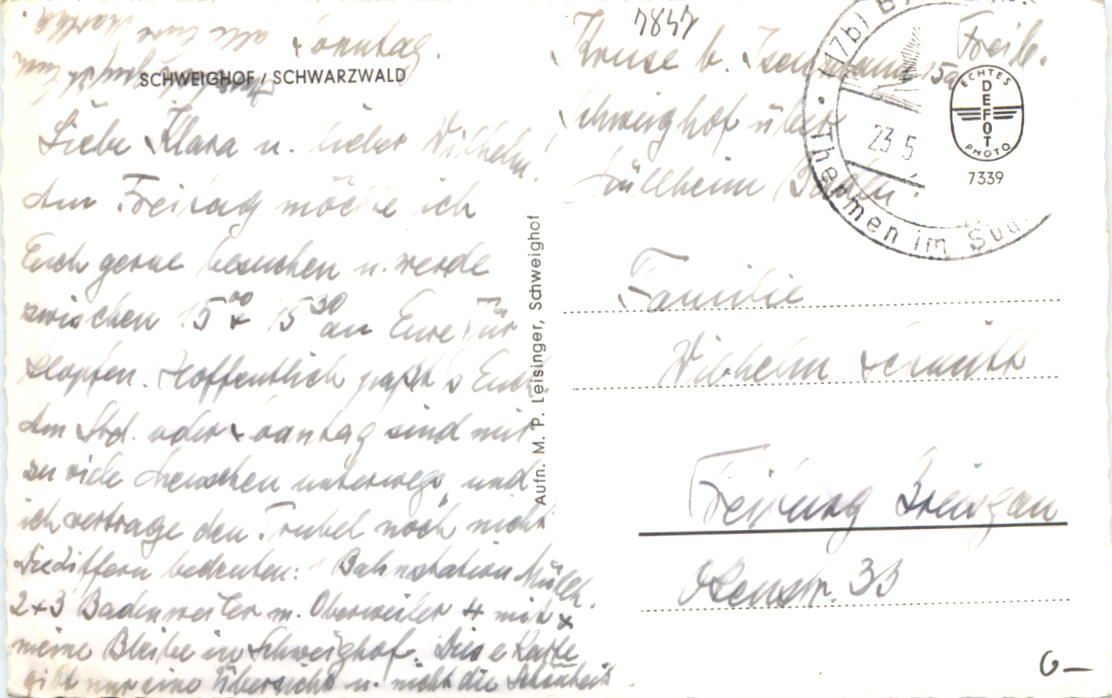 Sonntag.
SCHWEIGHOF / SCHWARZWALD
Liebe Klara u. lieber Wilhelm!
Am Freitag möchte ich
Euch gerne besuchen u. werde
zwischen 15⁰⁰ & 15³⁰ an Eure Tür
klopfen. Hoffentlich paßt's Euch
Am Std. oder Sonntag sind mir
zu viele Menschen unterwegs, und
ich vertrage den Trubel noch nicht
Die Ziffern bedeuten: Bahnstation Müllh.
2+3 Badenweiler m. Oberweiler 4 mit x
meine Bleibe in Schweighof. Diese Karte
gibt nur eine Übersicht u. nicht die Schönheit
alle Eure Martha
Aufn. M. P. Leisinger, Schweighof
7847
Kruse b.
Schweighof über
Müllheim Baden.
23. 5.
Thermen im
ECHTES
DEFOT
PHOTO
7339
Familie
Wilhelm Schmidt
Freiburg Breisgau
33
6-